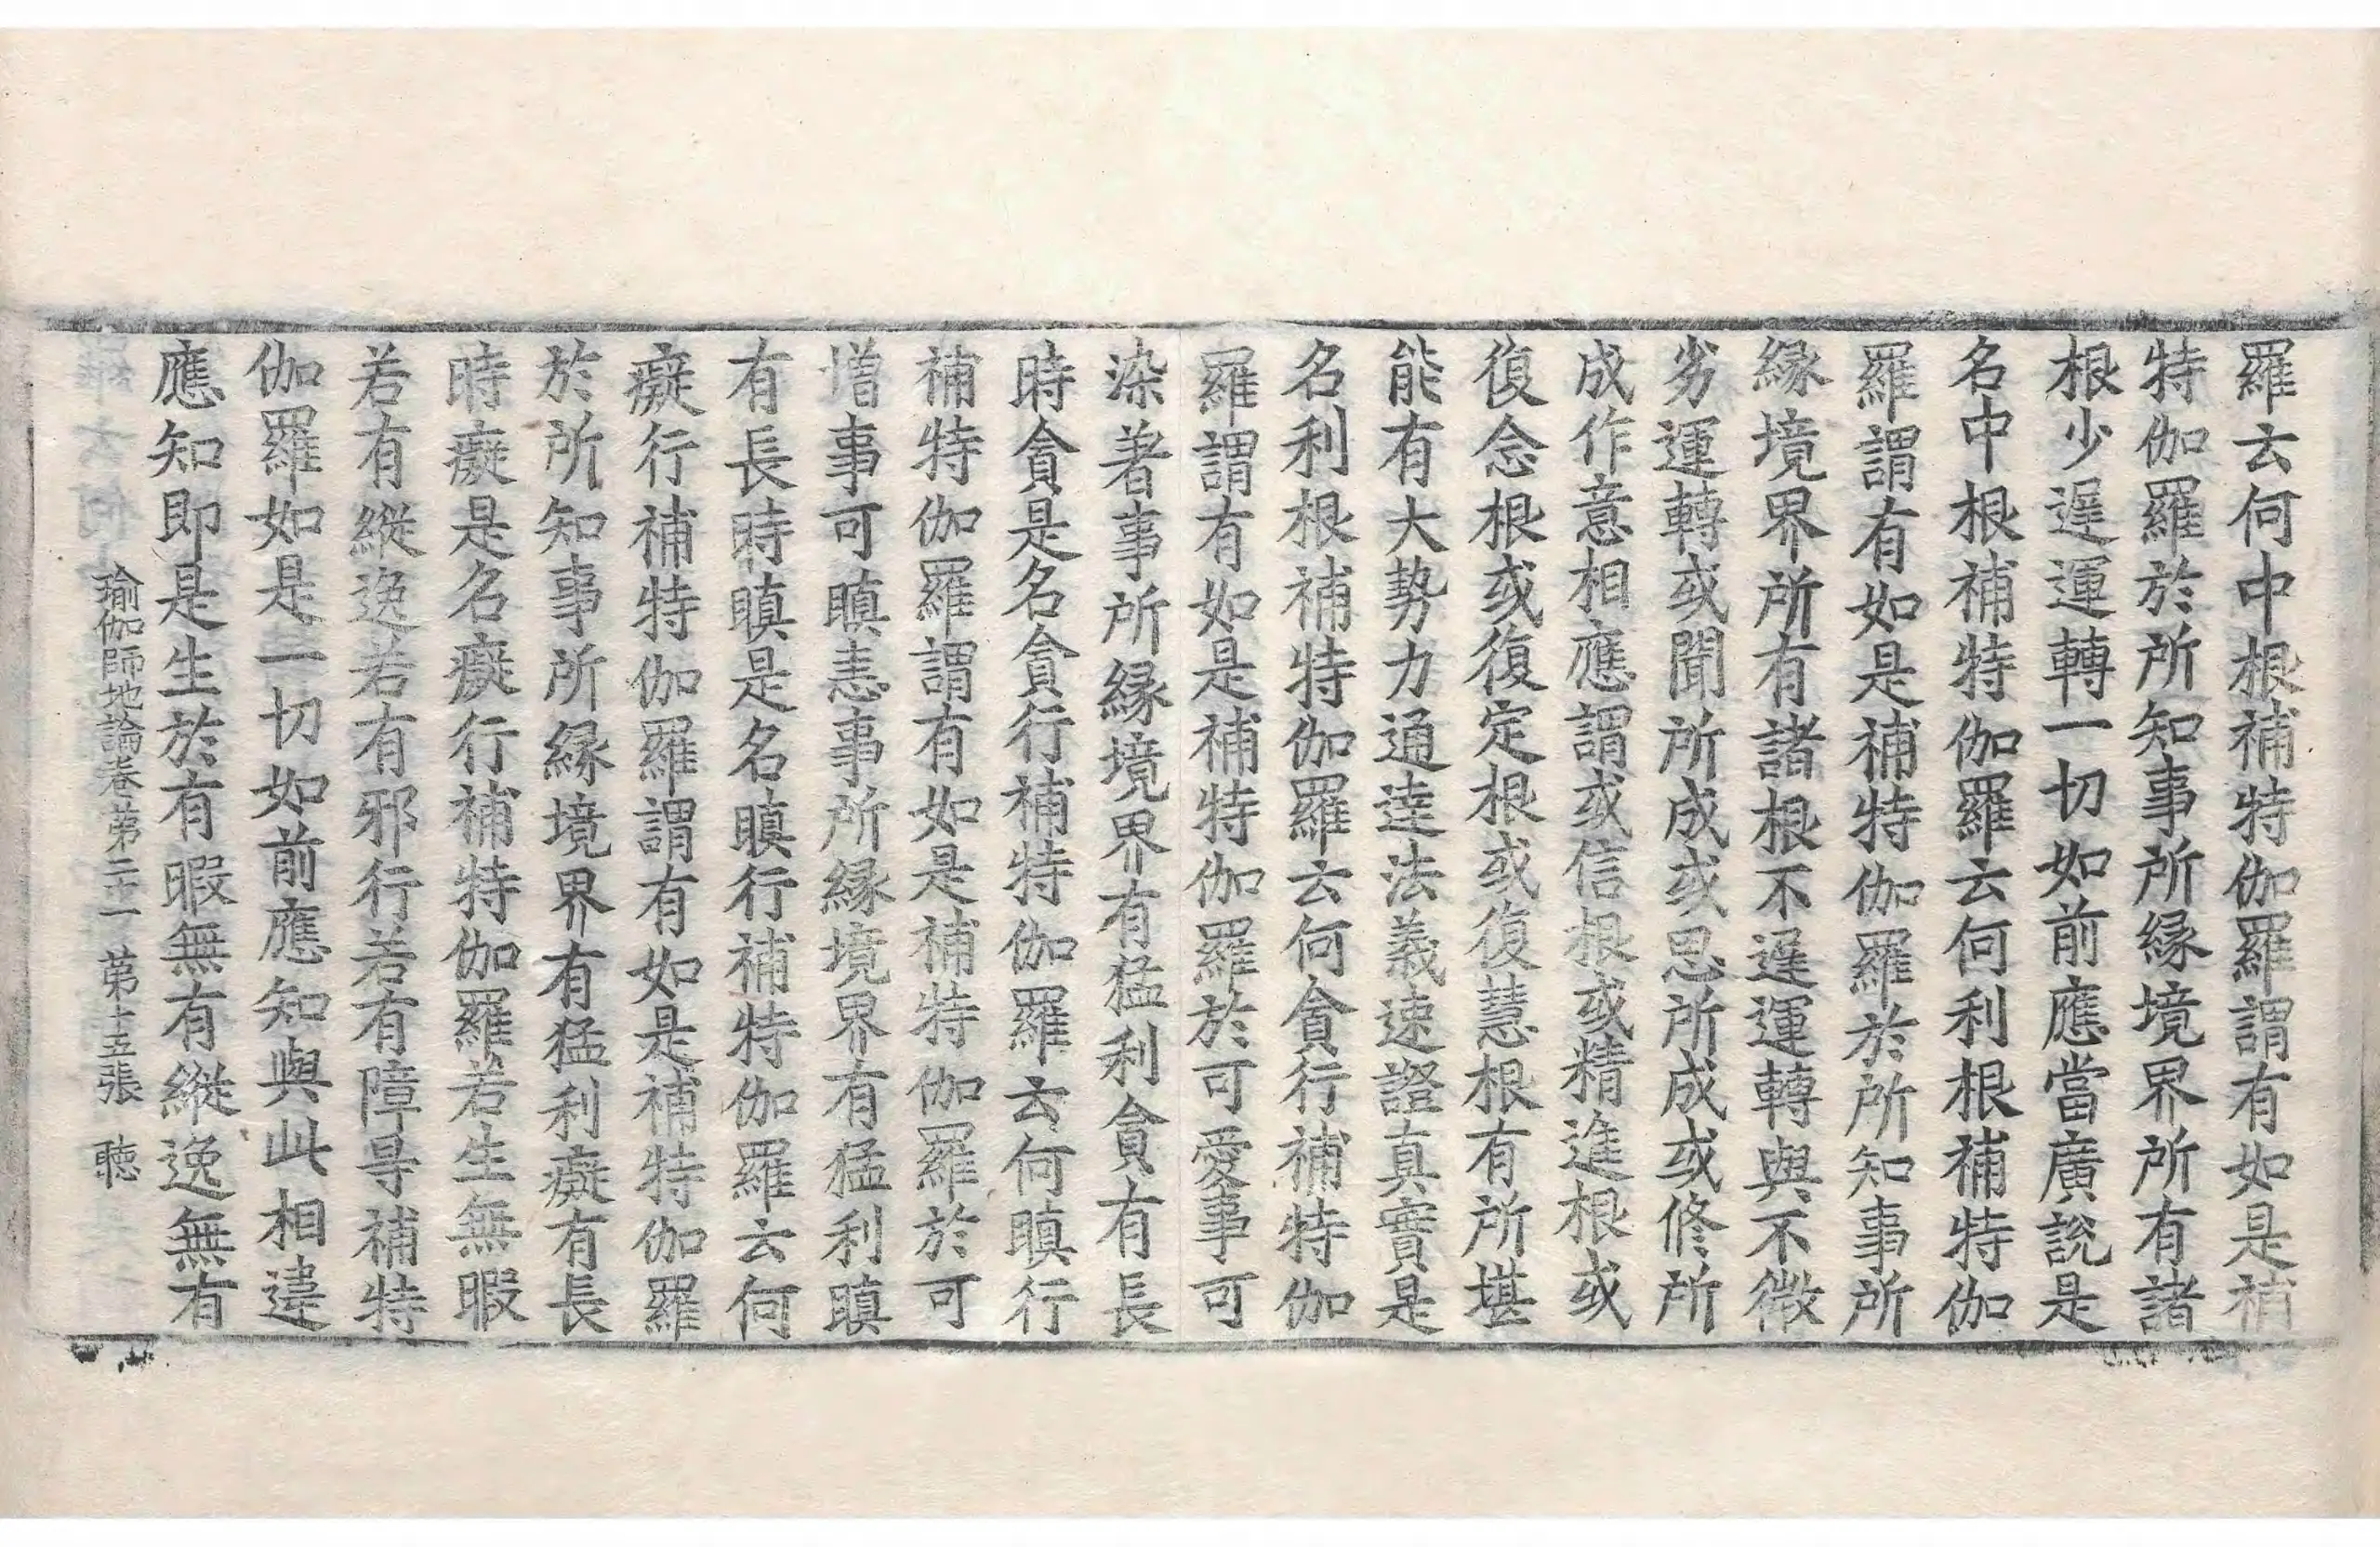 羅云何中根補特伽羅謂有如是補
特伽羅於所知事所縁境界所有諸
根少遅運轉一切如前應當廣說是
名中根補特伽羅云何利根補特伽
羅謂有如是補特伽羅於所知事所
縁境界所有諸根不遅運轉與不微
劣運轉或聞所成或思所成或修所
成作意相應謂或信根或精進根或
復念根或復定根或復慧根有所堪
能有大勢力通達法義速證真實是
名利根補特伽羅云何貪行補特伽
羅謂有如是補特伽羅於可愛事可
染著事所縁境界有猛利貪有長
時貪是名貪行補特伽羅云何瞋行
補特伽羅謂有如是補特伽羅於可
増事可瞋恚事所縁境界有猛利瞋
有長時瞋是名瞋行補特伽羅云何
癡行補特伽羅謂有如是補特伽羅
於所知事所縁境界有猛利癡有長
時癡是名癡行補特伽羅若生無暇
若有縱逸若有邪行若有障㝵補特
伽羅如是一切如前應知與此相違
應知即是生於有暇無有縱逸無有
瑜伽師地論卷第二十一　第十五張　聴